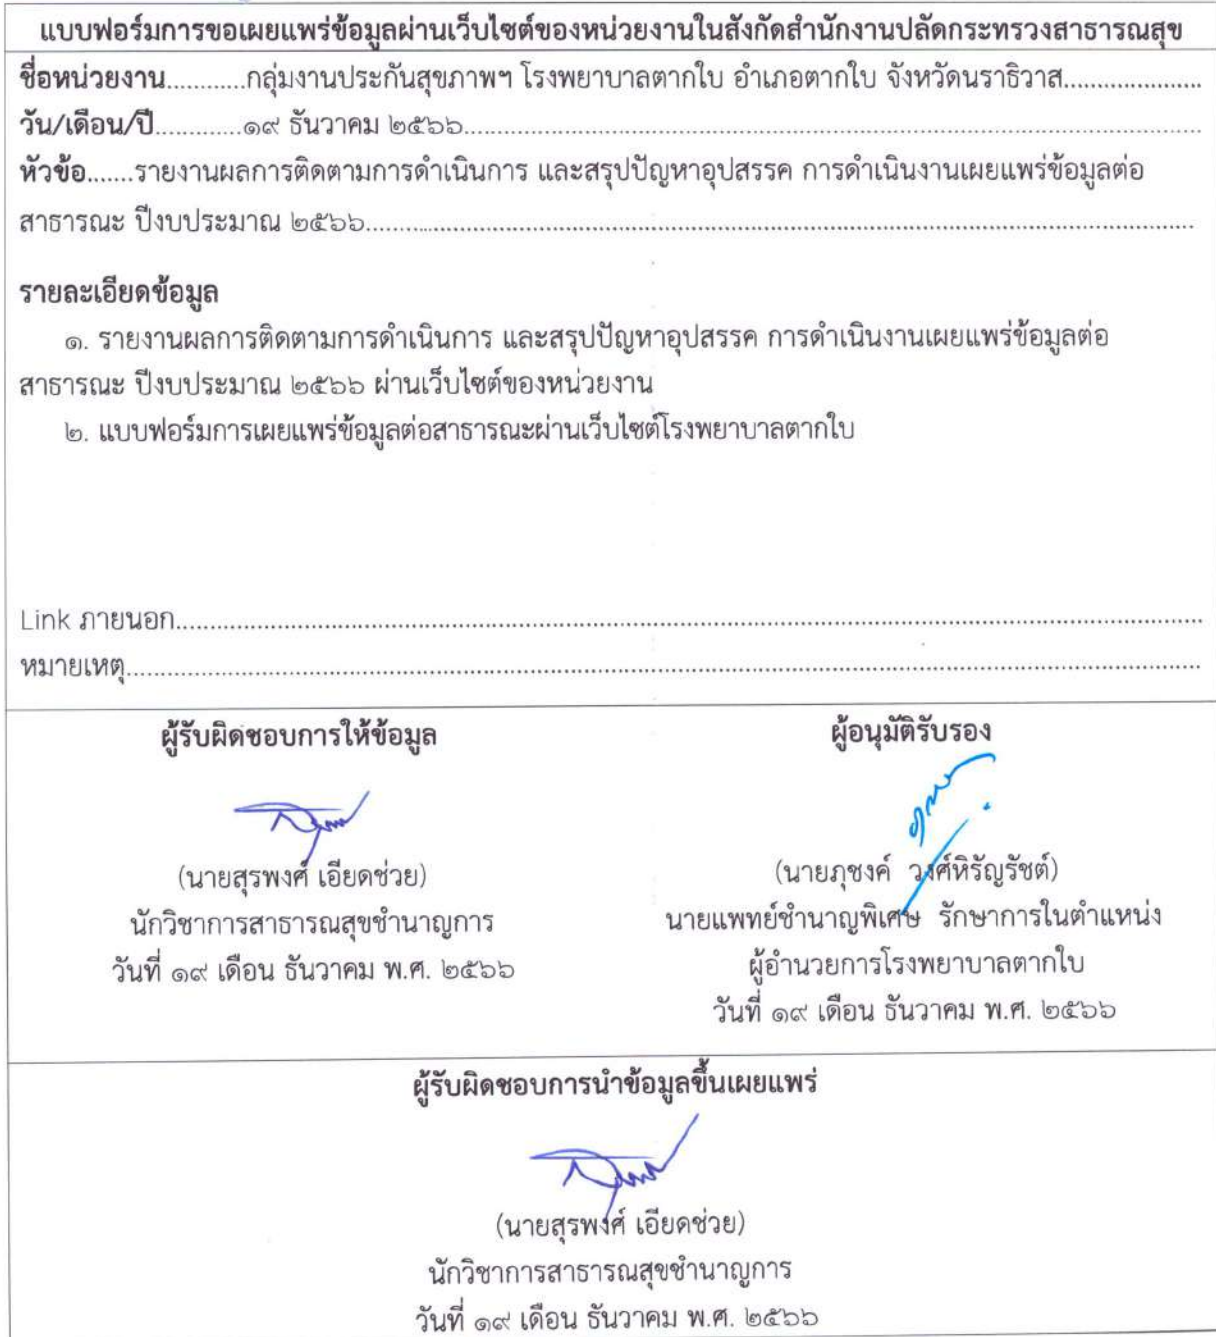 แบบฟอร์มการขอเผยแพร่ข้อมูลผ่านเว็บไซต์ของหน่วยงานในสังกัดสำนักงานปลัดกระทรวงสาธารณสุข
ชื่อหน่วยงาน............กลุ่มงานประกันสุขภาพฯ โรงพยาบาลตากใบ อำเภอตากใบ จังหวัดนราธิวาส.....................
วัน/เดือน/ปี.............๑๙ ธันวาคม ๒๕๖๖.....................
หัวข้อ.......รายงานผลการติดตามการดำเนินการ และสรุปปัญหาอุปสรรค การดำเนินงานเผยแพร่ข้อมูลต่อ
สาธารณะ ปีงบประมาณ ๒๕๖๖.....................
รายละเอียดข้อมูล
๑. รายงานผลการติดตามการดำเนินการ และสรุปปัญหาอุปสรรค การดำเนินงานเผยแพร่ข้อมูลต่อ
สาธารณะ ปีงบประมาณ ๒๕๖๖ ผ่านเว็บไซต์ของหน่วยงาน
๒. แบบฟอร์มการเผยแพร่ข้อมูลต่อสาธารณะผ่านเว็บไซต์โรงพยาบาลตากใบ
Link ภายนอก.....................
หมายเหตุ.....................
ผู้รับผิดชอบการให้ข้อมูล
(นายสุรพงศ์ เอียดช่วย)
นักวิชาการสาธารณสุขชำนาญการ
วันที่ ๑๙ เดือน ธันวาคม พ.ศ. ๒๕๖๖
ผู้อนุมัติรับรอง
(นายภุชงค์ วงศ์หิรัญรัชต์)
นายแพทย์ชำนาญพิเศษ รักษาการในตำแหน่ง
ผู้อำนวยการโรงพยาบาลตากใบ
วันที่ ๑๙ เดือน ธันวาคม พ.ศ. ๒๕๖๖
ผู้รับผิดชอบการนำข้อมูลขึ้นเผยแพร่
(นายสุรพงศ์ เอียดช่วย)
นักวิชาการสาธารณสุขชำนาญการ
วันที่ ๑๙ เดือน ธันวาคม พ.ศ. ๒๕๖๖